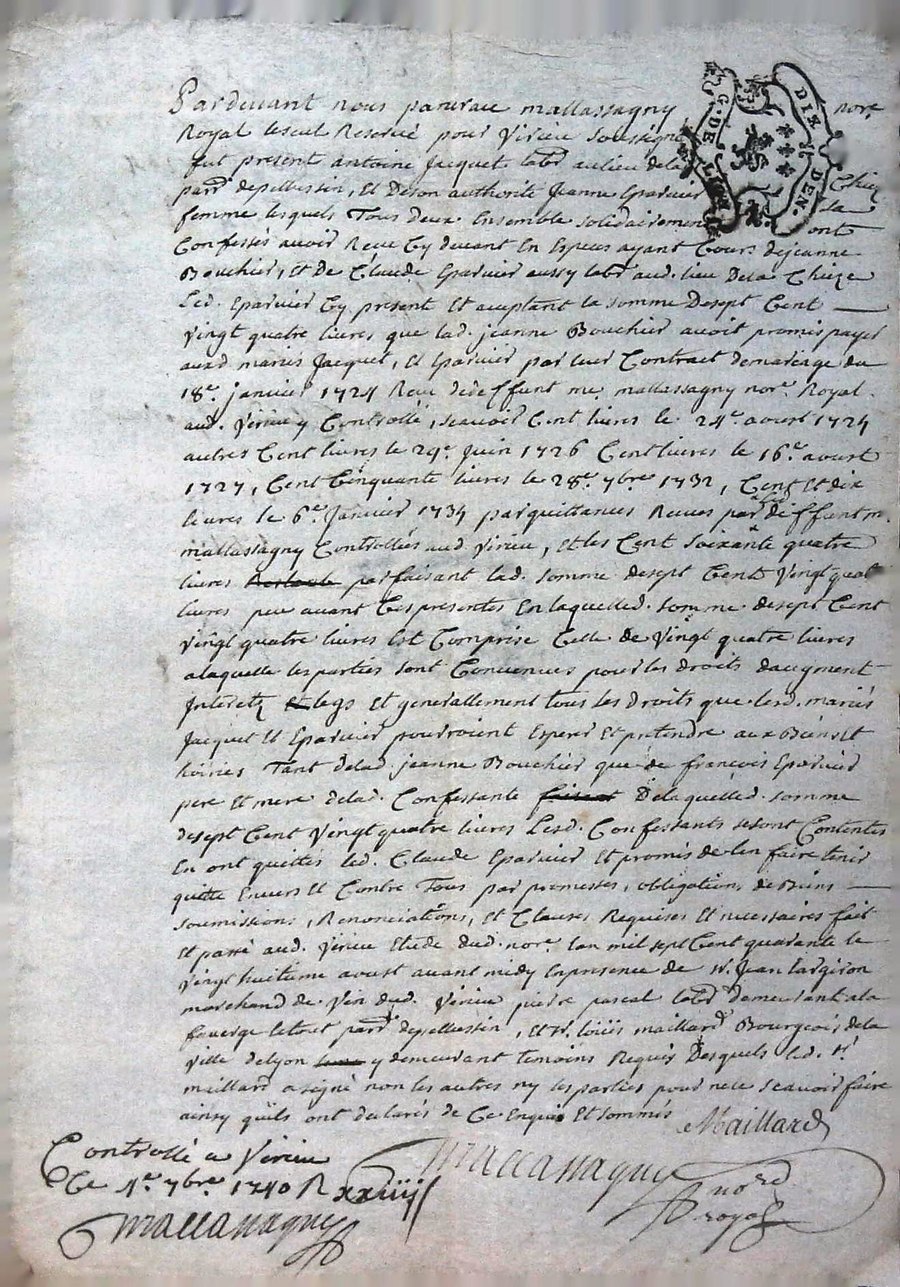 Pardevant nous mallassagny nore
Royal le seul Reservé pour Virieu soussigné
fut present antoine Jacquet labr au lieu de la Chieze
parr de pellessin, Et De son authorité Jeanne Eparvier sa
femme lesquels Tous deux Ensemble solidairement ont
Confessés avoir Receu Cy devant En Especes ayant Cours de jeanne
Bouchier, Et De Claude Eparvier aussy labr aud. lieu Dela Chieze
Led. Eparvier Cy present Et aceptant la somme De sept Cent
vingt quatre livres, que lad. jeanne Bouchier avoit promis payer
auxd maries Jacquet, Et Eparvier par leur Contract de mariage du
18e. janvier 1724 Receu de deffunt me mallassagny nore. Royal
aud. Virieu y Controllé, scavoir Cent livres le 24e. aoust 1724
autres Cent livres le 29e. Juin 1726 Cent livres le 16e. aoust
1727, Cent Cinquante livres le 28e. 7bre 1732, Cent Et dix
livres le 6e. Janvier 1734 par quittances Receues par led deffunt m.
mallassagny Controllées aud Virieu, Et les Cent soixante quatre
livres parfaisant lad. somme de sept Cent Vingt quatre
livres peu avant Ces presentes En laquelle d. somme de sept Cent
vingt quatre livres Est Comprise Celle de Vingt quatre livres
a laquelle les parties sont Convenues pour les droits daugment
Interetz legs Et generallement tous les droits que lesd. mariés
Jacquet Et Eparvier pourroient Esperer Et pretendre aux Biens Et
hoiries Tant de lad. jeanne Bouchier que de françois Eparvier
pere Et mere de lad. Confessante De laquelle d. somme
de sept Cent Vingt quatre livres Lesd. Confessants se sont Contentés
En ont quittés led. Claude Eparvier Et promis de len faire tenir
quitte Envers Et Contre Tous par promesses, obligation, de Biens
soumissions, Renonciations, Et Clauses Requises Et necessaires fait
Et passé aud. Virieu Etude dud. nore lan mil sept Cent quarante le
vingt huitieme aoust avant midy En presence de sr. Jean
marchand de Vin dud. Virieu pierre pascal labr demeurant a la
faverge parr de pellessin, Et sr. loüis maillard Bourgeois de la
ville de lyon y demeurant temoins Requis Desquels led. sr
maillard a signé non les autres ny les parties pour ne le scavoir faire
ainsy quils ont declarés de Ce Enquis Et sommés
Maillard
Controllé a Virieu
Ce 1er. 7bre. 1740 R xxiiijs
Mallassagny
Mallassagny nore
royal
G. DE LYON DIX DEN.